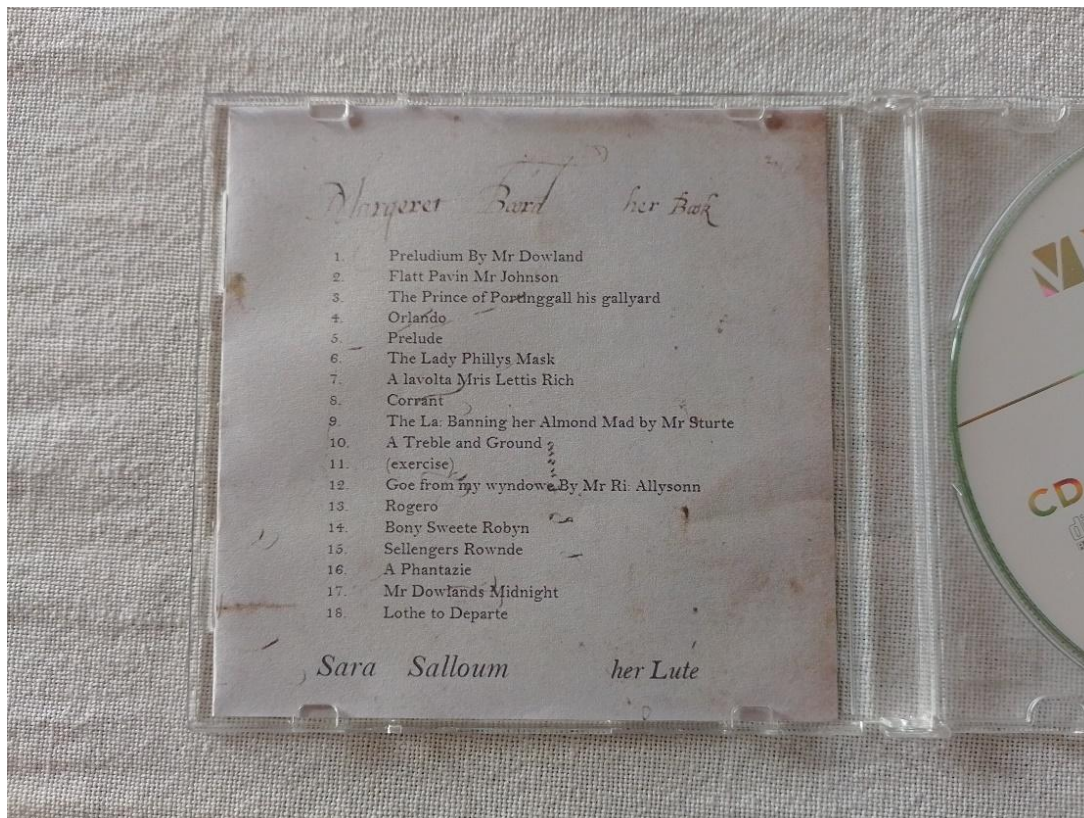 Margeret Bord her Book
1. Preludium By Mr Dowland
2. Flatt Pavin Mr Johnson
3. The Prince of Portinggall his gallyard
4. Orlando
5. Prelude
6. The Lady Phillys Mask
7. A lavolta Mris Lettis Rich
8. Corrant
9. The La: Banning her Almond Mad by Mr Sturte
10. A Treble and Ground
11. (exercise)
12. Goe from my wyndowe By Mr Ri: Allysonn
13. Rogero
14. Bony Sweete Robyn
15. Sellengers Rownde
16. A Phantazie
17. Mr Dowlands Midnight
18. Lothe to Departe
Sara Salloum her Lute
CD